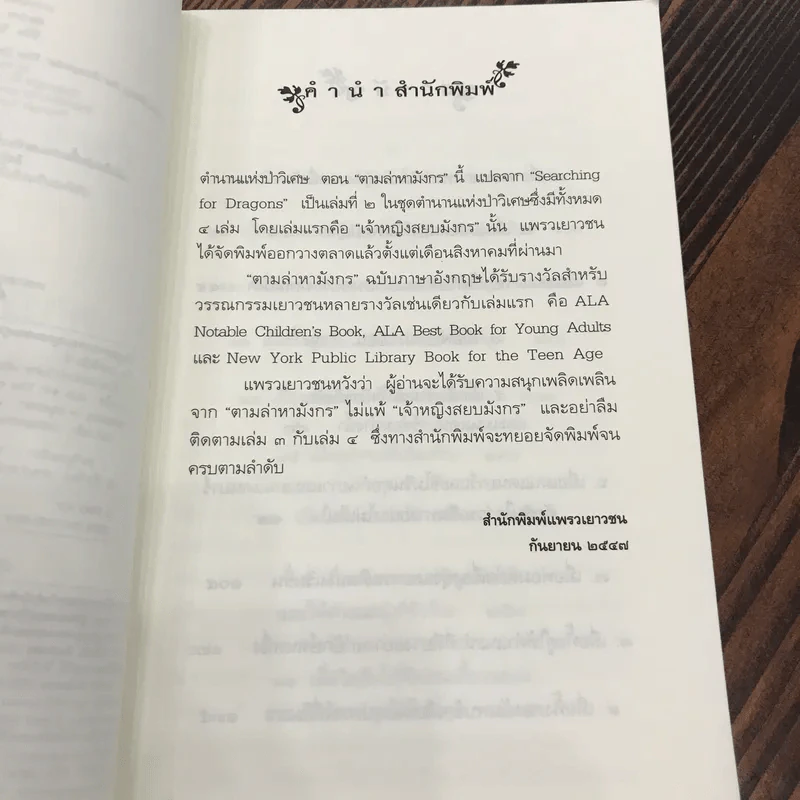 คำนำสำนักพิมพ์
ตำนานแห่งป่าวิเศษ ตอน "ตามล่าหามังกร" นี้ แปลจาก "Searching
for Dragons" เป็นเล่มที่ ๒ ในชุดตำนานแห่งป่าวิเศษซึ่งมีทั้งหมด
๔ เล่ม โดยเล่มแรกคือ "เจ้าหญิงสยบมังกร" นั้น แพรวเยาวชน
ได้จัดพิมพ์ออกวางตลาดแล้วตั้งแต่เดือนสิงหาคมที่ผ่านมา
"ตามล่าหามังกร" ฉบับภาษาอังกฤษได้รับรางวัลสำหรับ
วรรณกรรมเยาวชนหลายรางวัลเช่นเดียวกับเล่มแรก คือ ALA
Notable Children's Book, ALA Best Book for Young Adults
และ New York Public Library Book for the Teen Age
แพรวเยาวชนหวังว่า ผู้อ่านจะได้รับความสนุกเพลิดเพลิน
จาก "ตามล่าหามังกร" ไม่แพ้ "เจ้าหญิงสยบมังกร" และอย่าลืม
ติดตามเล่ม ๓ กับเล่ม ๔ ซึ่งทางสำนักพิมพ์จะทยอยจัดพิมพ์จน
ครบตามลำดับ
สำนักพิมพ์แพรวเยาวชน
กันยายน ๒๕๔๗